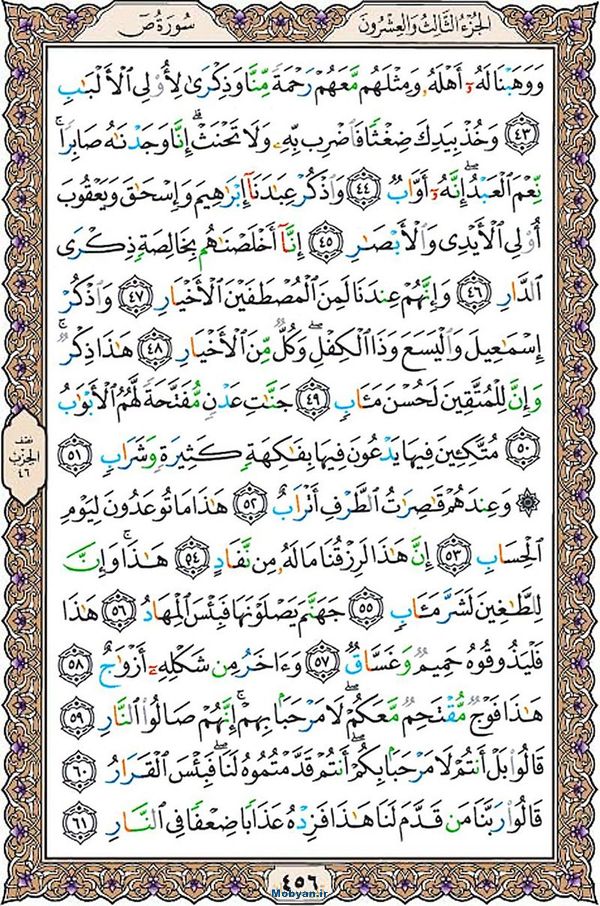 الجُزْءُ الثَّالِثُ وَالعِشْرُونَ
سُورَةُ صٓ
وَوَهَبْنَا لَهُۥٓ أَهْلَهُۥ وَمِثْلَهُم مَّعَهُمْ رَحْمَةً مِّنَّا وَذِكْرَىٰ لِأُو۟لِى ٱلْأَلْبَٰبِ
٤٣ وَخُذْ بِيَدِكَ ضِغْثًا فَٱضْرِب بِّهِۦ وَلَا تَحْنَثْ ۗ إِنَّا وَجَدْنَٰهُ صَابِرًا ۚ
نِّعْمَ ٱلْعَبْدُ ۖ إِنَّهُۥٓ أَوَّابٌ ٤٤ وَٱذْكُرْ عِبَٰدَنَآ إِبْرَٰهِيمَ وَإِسْحَٰقَ وَيَعْقُوبَ
أُو۟لِى ٱلْأَيْدِى وَٱلْأَبْصَٰرِ ٤٥ إِنَّآ أَخْلَصْنَٰهُم بِخَالِصَةٍ ذِكْرَى
ٱلدَّارِ ٤٦ وَإِنَّهُمْ عِندَنَا لَمِنَ ٱلْمُصْطَفَيْنَ ٱلْأَخْيَارِ ٤٧ وَٱذْكُرْ
إِسْمَٰعِيلَ وَٱلْيَسَعَ وَذَا ٱلْكِفْلِ ۖ وَكُلٌّ مِّنَ ٱلْأَخْيَارِ ٤٨ هَٰذَا ذِكْرٌ ۚ
وَإِنَّ لِلْمُتَّقِينَ لَحُسْنَ مَـَٔابٍ ٤٩ جَنَّٰتِ عَدْنٍ مُّفَتَّحَةً لَّهُمُ ٱلْأَبْوَٰبُ
٥٠ مُتَّكِـِٔينَ فِيهَا يَدْعُونَ فِيهَا بِفَٰكِهَةٍ كَثِيرَةٍ وَشَرَابٍ ٥١
۞ وَعِندَهُمْ قَٰصِرَٰتُ ٱلطَّرْفِ أَتْرَابٌ ٥٢ هَٰذَا مَا تُوعَدُونَ لِيَوْمِ
ٱلْحِسَابِ ٥٣ إِنَّ هَٰذَا لَرِزْقُنَا مَا لَهُۥ مِن نَّفَادٍ ٥٤ هَٰذَا ۚ وَإِنَّ
لِلطَّٰغِينَ لَشَرَّ مَـَٔابٍ ٥٥ جَهَنَّمَ يَصْلَوْنَهَا فَبِئْسَ ٱلْمِهَادُ ٥٦ هَٰذَا
فَلْيَذُوقُوهُ حَمِيمٌ وَغَسَّاقٌ ٥٧ وَءَاخَرُ مِن شَكْلِهِۦٓ أَزْوَٰجٌ ٥٨
هَٰذَا فَوْجٌ مُّقْتَحِمٌ مَّعَكُمْ ۖ لَا مَرْحَبًۢا بِهِمْ ۚ إِنَّهُمْ صَالُوا۟ ٱلنَّارِ ٥٩
قَالُوا۟ بَلْ أَنتُمْ لَا مَرْحَبًۢا بِكُمْ ۖ أَنتُمْ قَدَّمْتُمُوهُ لَنَا ۖ فَبِئْسَ ٱلْقَرَارُ ٦٠
قَالُوا۟ رَبَّنَا مَن قَدَّمَ لَنَا هَٰذَا فَزِدْهُ عَذَابًا ضِعْفًا فِى ٱلنَّارِ ٦١
نصف
الحزب
٤٦
٤٥٦
Mobyan.ir